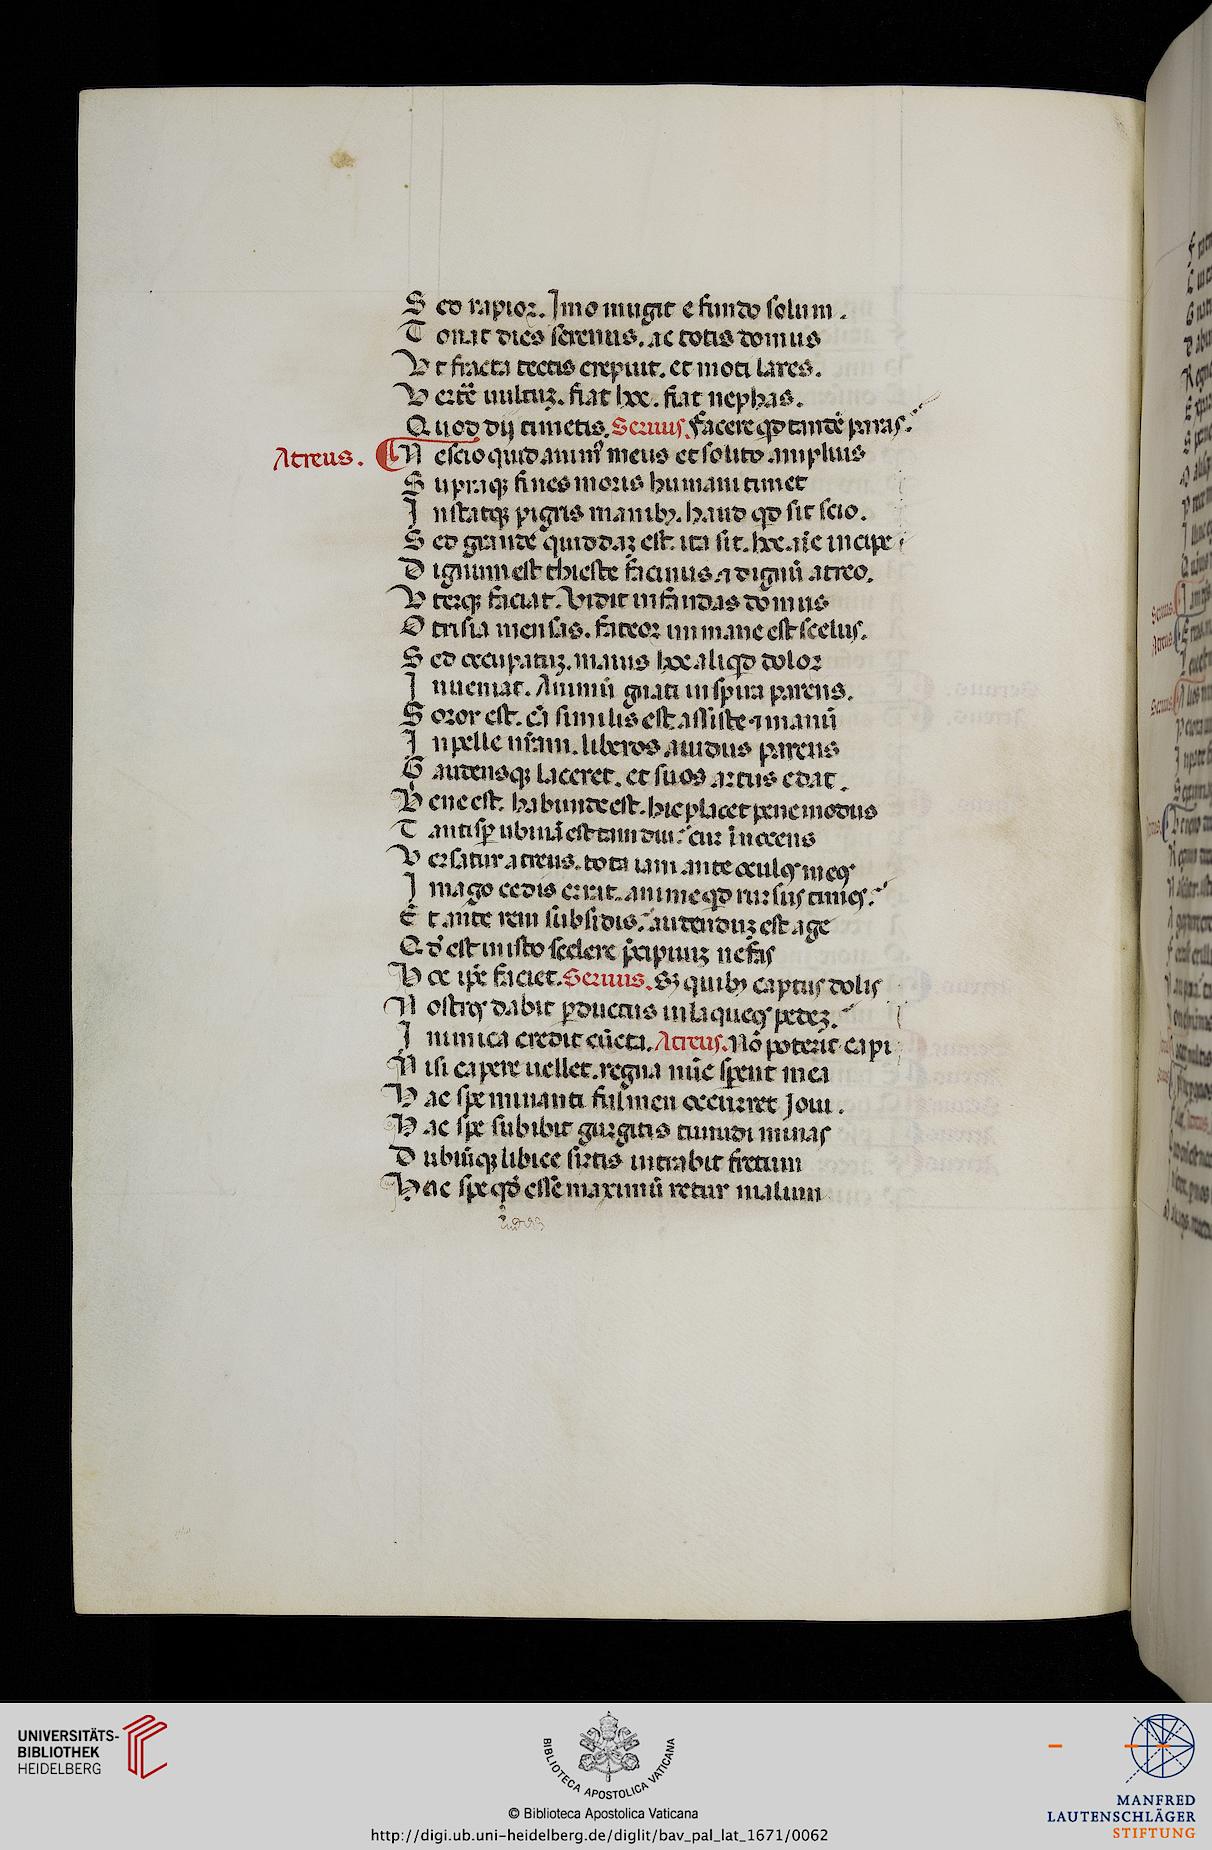 Sed rapior. Imo mugit e fundo solum.
Tonat dies serenus. ac totis domus
Vt fracta tectis crepuit. et moti lares.
Vertere uultuꝫ. fiat hoc. fiat nephas.
Quod dij timetis. Seruus. facere qd tandē paras.
Atreus. Nescio quid animꝰ meus et solito amplius
Supraqꝫ fines moris humani tumet
Instatqꝫ pigris manibꝫ. haud qd sit scio.
Sed grande quiddaꝫ est. ita sit. hoc aīe incipe
Dignum est thieste facinus ⁊ dignū atreo.
Vterqꝫ faciat. Vidit infandas domus
Otrisia mensas. fateor immane est scelus.
Sed occupatuꝫ. maius hoc aliqd dolor
Inueniat. Animū gnati inspira parens.
Soror est. cā similis est. assiste ⁊ manū
Inpelle nr̄am. liberos auidus parens
Gaudensqꝫ laceret. et suos artus edat.
Bene est. habunde est. hic placet pene modus
Tantisꝑ ubinā est tam diu. cur īnocens
Versatur atreus. tota iam ante oculos meos
Imago cedis errat. anime qd rursus times.
Et ante rem subsidis. audenduꝫ est age
Qd est in isto scelere p̄cipuuꝫ nefas
Hoc ip̄e faciet. Seruus. Sꝫ quibꝫ captus dolis
Nostros dabit ꝑductus in laqueos pedeꝫ.
Inimica credit cūcta. Atreus. Nō poterat capi
Nisi capere uellet. regna nūc sperat mea
Hac spe minanti fulmen occurret Ioui.
Hac spe subibit gurgitis timidi minas
Dubiūqꝫ libice sirtis intrabit fretum
Hac spe qd esse maximū retur malum
UNIVERSITÄTS-
BIBLIOTHEK
HEIDELBERG
BIBLIOTECA APOSTOLICA VATICANA
© Biblioteca Apostolica Vaticana
http://digi.ub.uni-heidelberg.de/diglit/bav_pal_lat_1671/0062
MANFRED
LAUTENSCHLÄGER
STIFTUNG